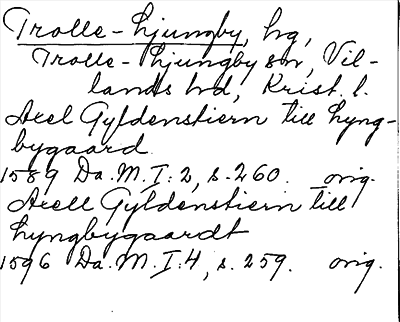 Trolle-Ljungby, hg,
Trolle-Ljungby sn, Vil-
lands hd, Krist. l.
Axel Gyldenstiern till Lyng-
bygaard
1589 Da. M. I:2, s. 260. orig.
Axell Gyldenstiern till
Lyngbygaardt
1596 Da. M. I:4, s. 259. orig.